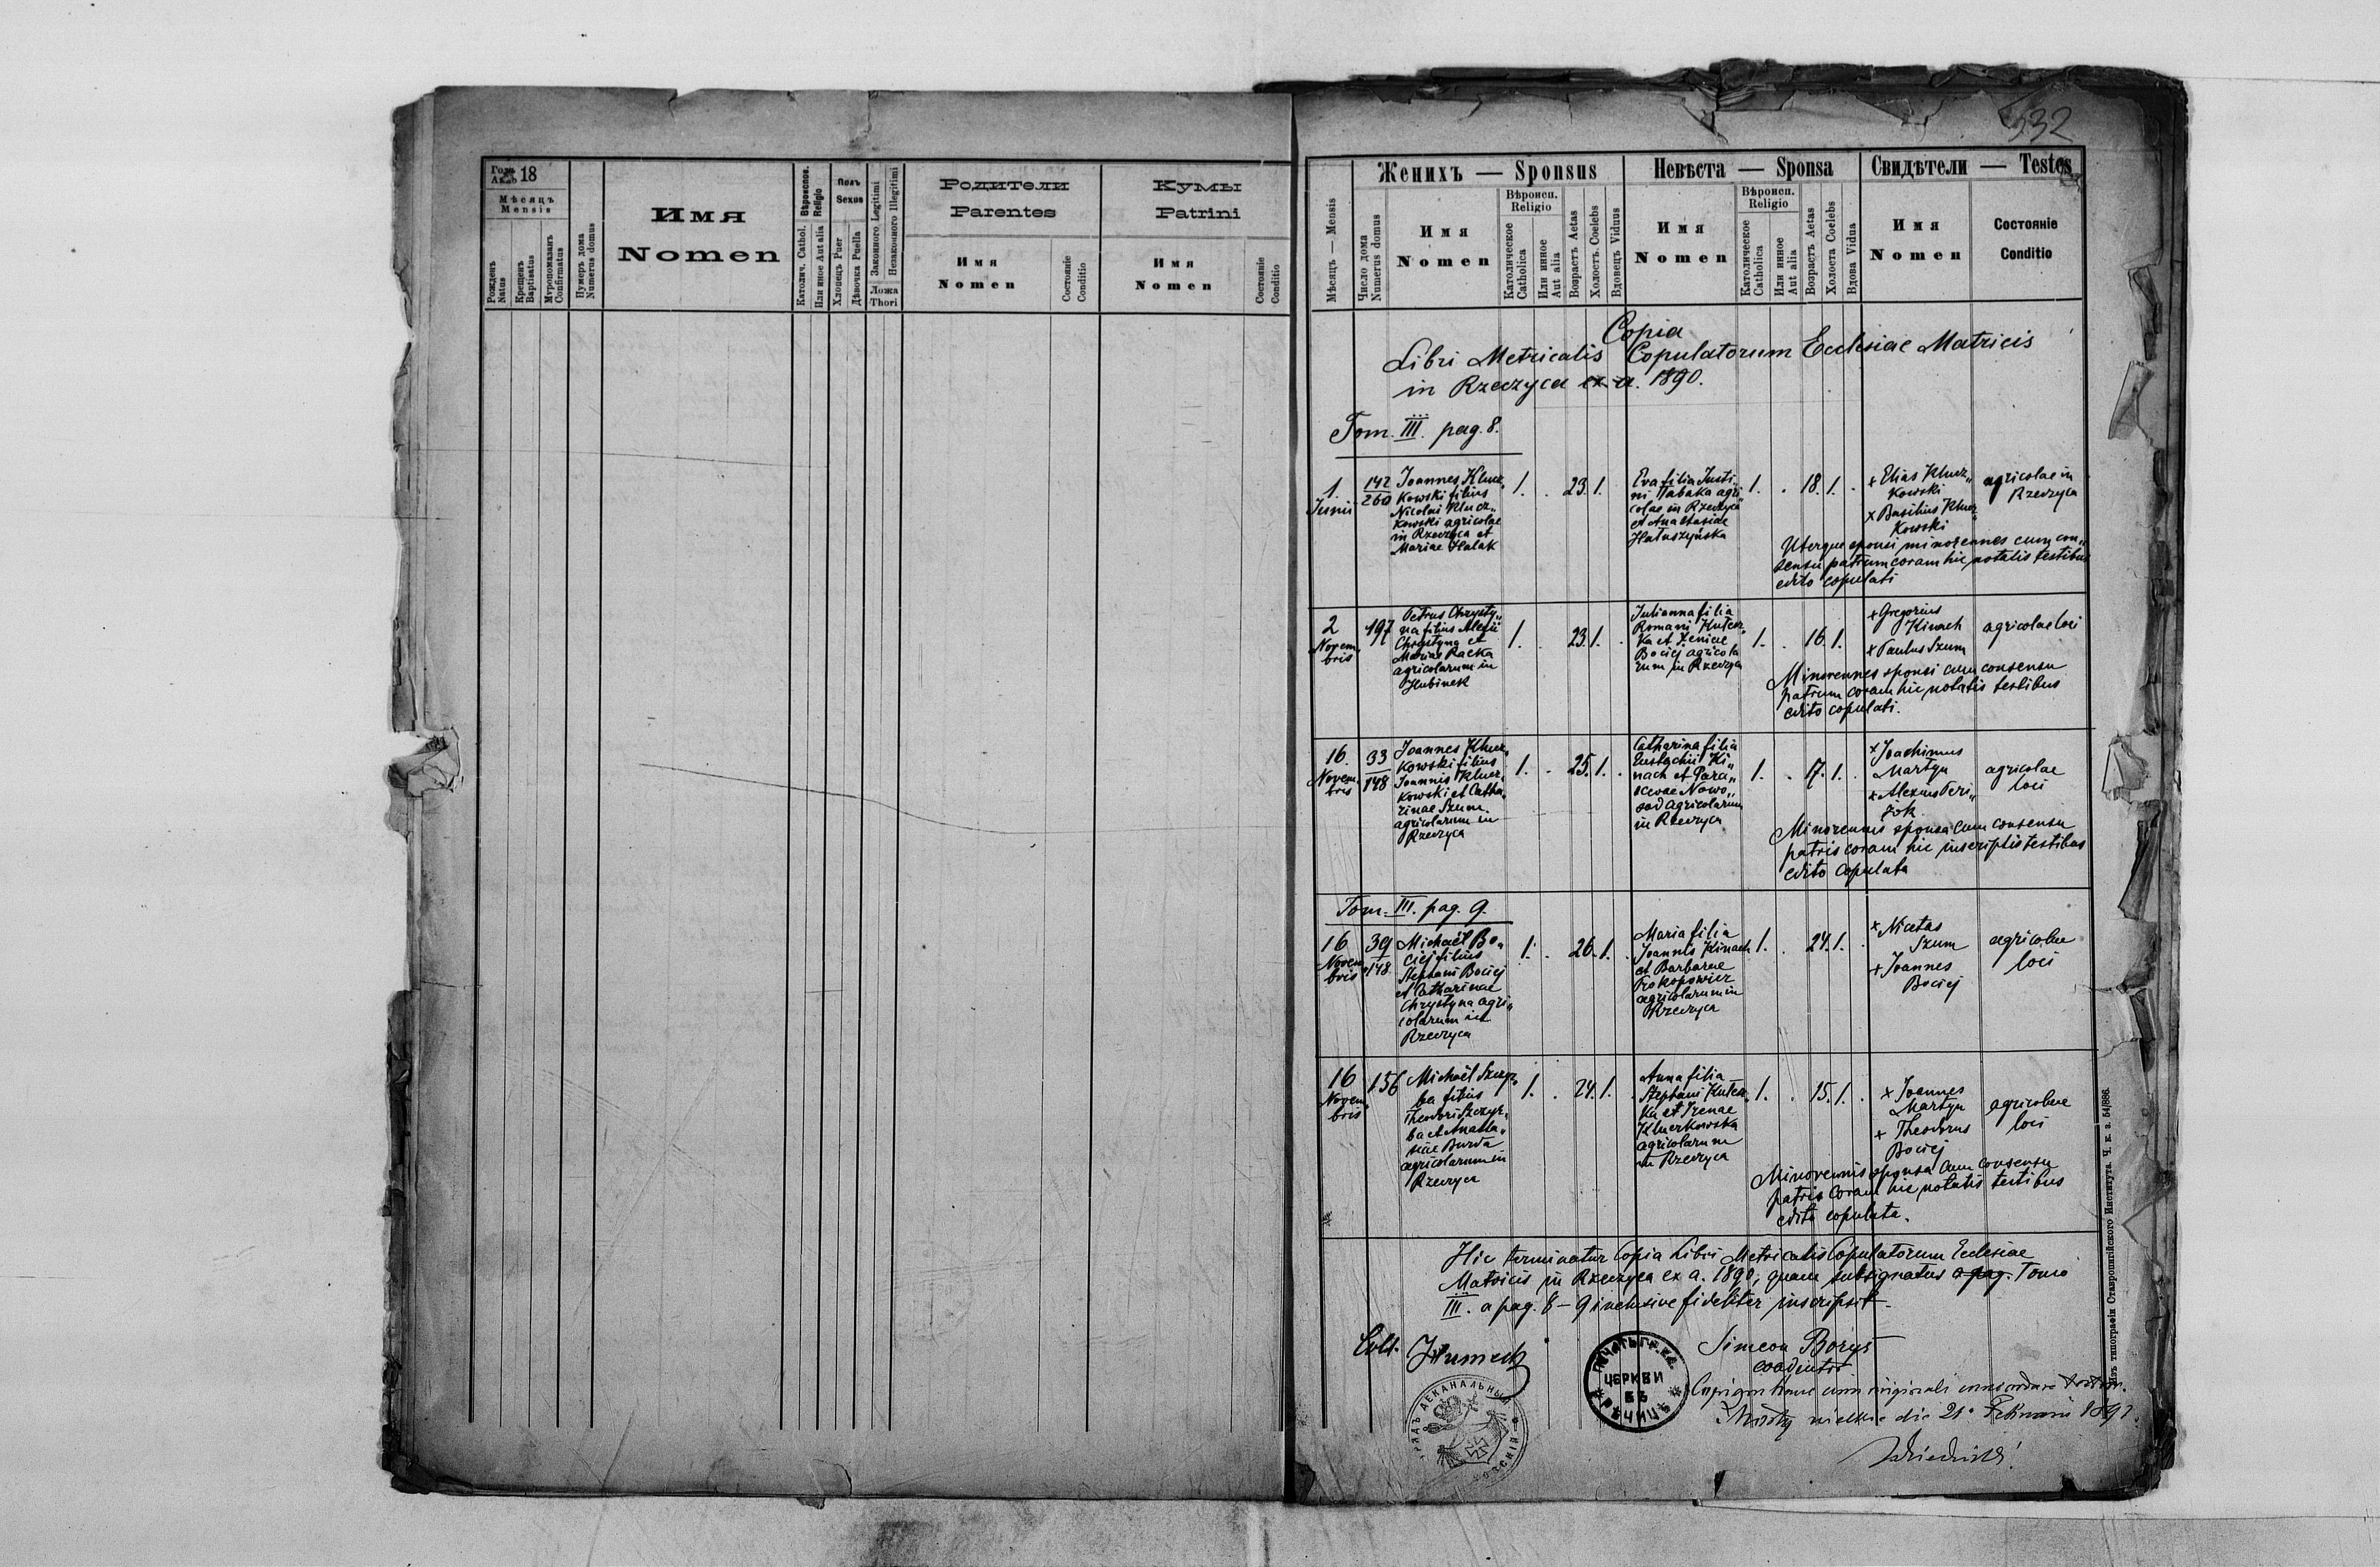 Годъ Anno 18
Мѣсяцъ
Mensis
Рожденъ Natus
Крещенъ Baptisatus
Мѵропомазанъ Confirmatus
Нумеръ дома Numerus domus
Имя
Nomen
Вѣроиспов. Religio
Католич. Cathol.
Или иное Aut alia
Полъ
Sexus
Хлопецъ Puer
Дѣвочка Puella
Законного Legitimi
Незаконного Illegitimi
Ложа
Thori
Родители
Parentes
Имя
Nomen
Состояніе Conditio
Кумы
Patrini
Имя
Nomen
Состояніе Conditio
532
Женихъ — Sponsus
Невѣста — Sponsa
Свидѣтели — Testes
Мѣсяцъ — Mensis
Число дома Numerus domus
Имя
Nomen
Вѣроисп.
Religio
Католическое Catholica
Или инное Aut alia
Возрастъ Aetas
Холостъ. Coelebs
Вдовецъ Viduus
Имя
Nomen
Вѣроисп.
Religio
Католическое Catholica
Или инное Aut alia
Возрастъ Aetas
Холоста Coelebs
Вдова Vidua
Имя
Nomen
Состояніе
Conditio
Copia
Libri Metricalis Copulatorum Ecclesiae Matricis
in Rzeczyca ex a. 1890.
Tom. III. pag. 8.
1.
Junii
142
260
Joannes Klucz„
kowski filius
Nicolai Klucz„
kowski agricolae
in Rzeczyca et
Mariae Halak
1. . 23. 1.
Eva filia Justi„
ni Tabaka agri„
colae in Rzeczyca
et Anastasiae
Hałuszyńska
1. . 18. 1. .
+ Elias Klucz„
kowski
+ Basilius Klucz„
kowski
agricolae in
Rzeczyca
Uterque sponsi minorennes cum con„
sensu patrum coram hic notatis testibus
edito copulati
2
Novem„
bris
197
Petrus Chrysty„
na filius Alexii
Chrystyna et
Mariae Racka
agricolarum in
Hubinek
1. . 23. 1. .
Julianna filia
Romani Kułecz„
ka et Xeniae
Bociej agricola
rum in Rzeczyca
1. . 16. 1.
+ Gregorius
Kinach
+ Paulus Szum
agricolae loci
Minorennes sponsi cum consensu
patrum coram hic notatis testibus
edito copulati.
16.
Novem„
bris
33
148
Joannes Klucz„
kowski filius
Joannis Klucz„
kowski et Catha„
rinae Szum
agricolarum in
Rzeczyca
1. . 25. 1. .
Catharina filia
Eustachii Ki„
nach et Para„
scevae Nowo„
sad agricolarum
in Rzeczyca
1. . 17. 1. .
+ Joachimus
Martyn
+ Alexius Peri„
żok
agricolae
loci
Minorennis sponsa cum consensu
patris coram hic inscriptis testibus
edito copulata
Tom. III. pag. 9.
16
Novem„
bris
39
148
Michaël Bo„
ciej filius
Stephani Bociej
et Catharinae
Chrystyna agri„
colarum in
Rzeczyca
1. . 26. 1. .
Maria filia
Joannis Kinach
et Barbarae
Prokopowicz
agricolarum in
Rzeczyca
1. . 24. 1. .
+ Nicetas
Szum
+ Joannes
Bociej
agricolae
loci
16
Novem„
bris
156
Michaël Szczyr„
ba filius
Theodori Szczyr„
ba et Anasta„
siae Burda
agricolarum in
Rzeczyca
1. . 24. 1. .
Anna filia
Stephani Kułecz„
ka et Irenae
Kluczkowska
agricolarum
in Rzeczyca
1. . 15. 1. .
+ Joannes
Martyn
+ Theodorus
Bociej
agricolae
loci
Minorennis sponsa cum consensu
patris coram hic notatis testibus
edito copulata.
Hic terminatur Copia Libri Metricalis Copulatorum Ecclesiae
Matricis in Rzeczyca ex a. 1890, quam subsignatus a pag. Tomo
III. a pag. 8 – 9 inclusive fideliter inscripsit.
Simeon Boryś
coadiutor
ПЕЧАТЬ ГР. КА.
ЦЕРКВИ
ВЪ
РѢЧИЦѢ
Copiam hanc cum originali concordare
die 21. Februarii 1891.
Изъ типографіи Ставропигійского Института. Ч. к. з. 54/886.